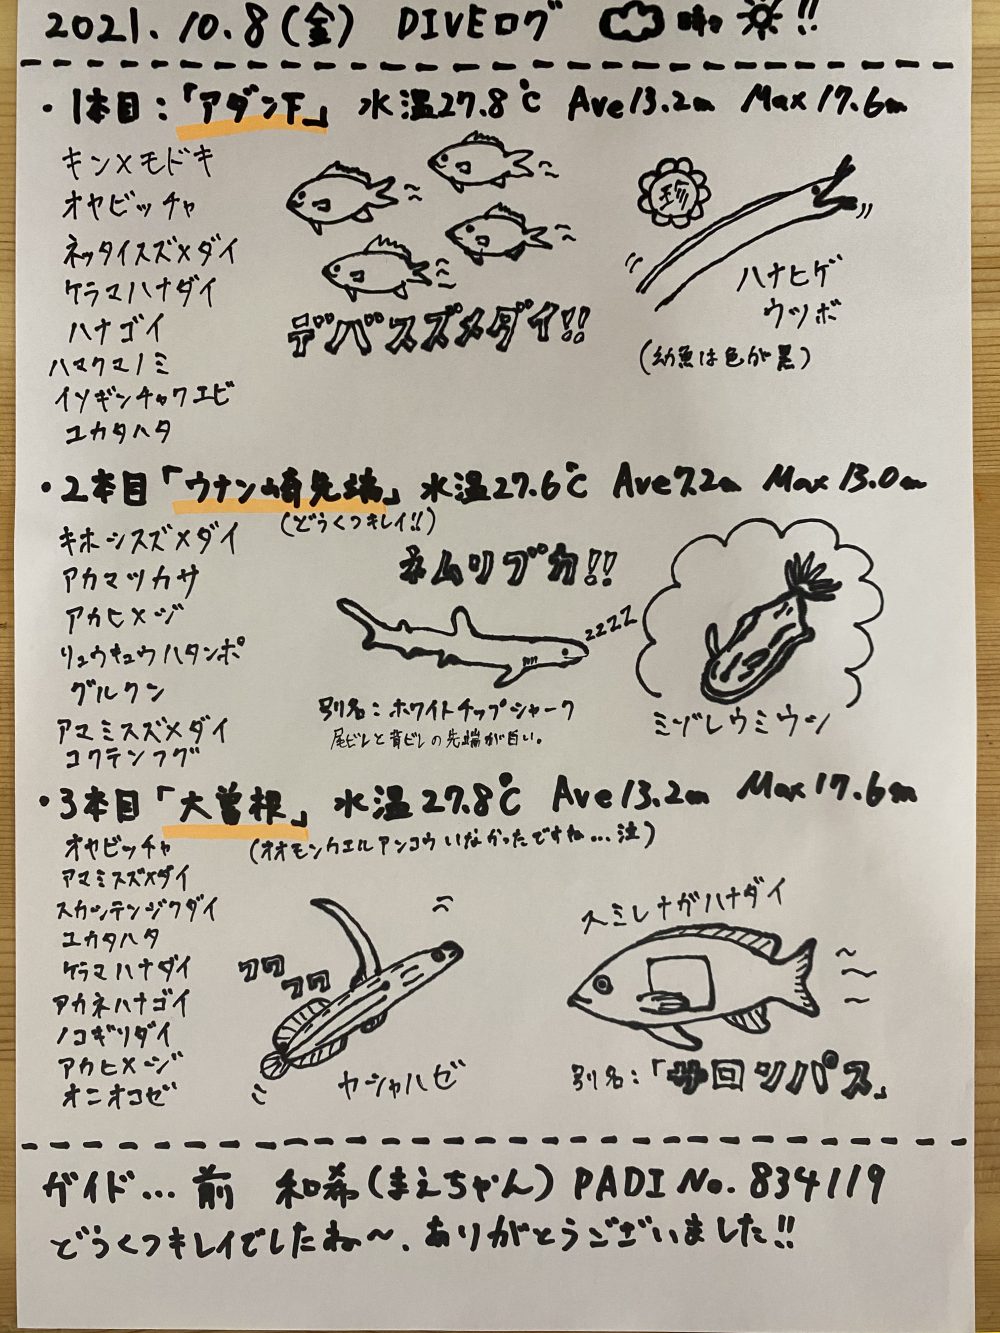 2021.10.8(金) DIVEログ 時々 !!
・1本目:「アダン下」 水温27.8℃ Ave13.2m Max17.6m
キンメモドキ
オヤビッチャ
ネッタイスズメダイ
ケラマハナダイ
ハナゴイ
ハマクマノミ
イソギンチャクエビ
ユカタハタ
デバスズメダイ!!
珍
ハナヒゲ
ウツボ
(幼魚は色が黒)
・2本目「ウナン崎先端」 水温27.6℃ Ave7.2m Max13.0m
(どうくつキレイ!!)
キホシスズメダイ
アカマツカサ
アカヒメジ
リュウキュウハタンポ
グルクン
アマミスズメダイ
コクテンフグ
ネムリブカ!!
zzzz
別名:ホワイトチップシャーク
尾ビレと背ビレの先端が白い。
ミゾレウミウシ
・3本目「大曽根」 水温27.8℃ Ave13.2m Max17.6m
(オオモンカエルアンコウいなかったですね...泣)
オヤビッチャ
アマミスズメダイ
スカシテンジクダイ
ユカタハタ
ケラマハナダイ
アカネハナゴイ
ノコギリダイ
アカヒメジ
オニオコゼ
ワワ
ワワ
ヤシャハゼ
スミレナガハナダイ
別名:「サロンパス」
ガイド...前 和希(まえちゃん) PADI No.834119
どうくつキレイでしたね〜、ありがとうございました!!